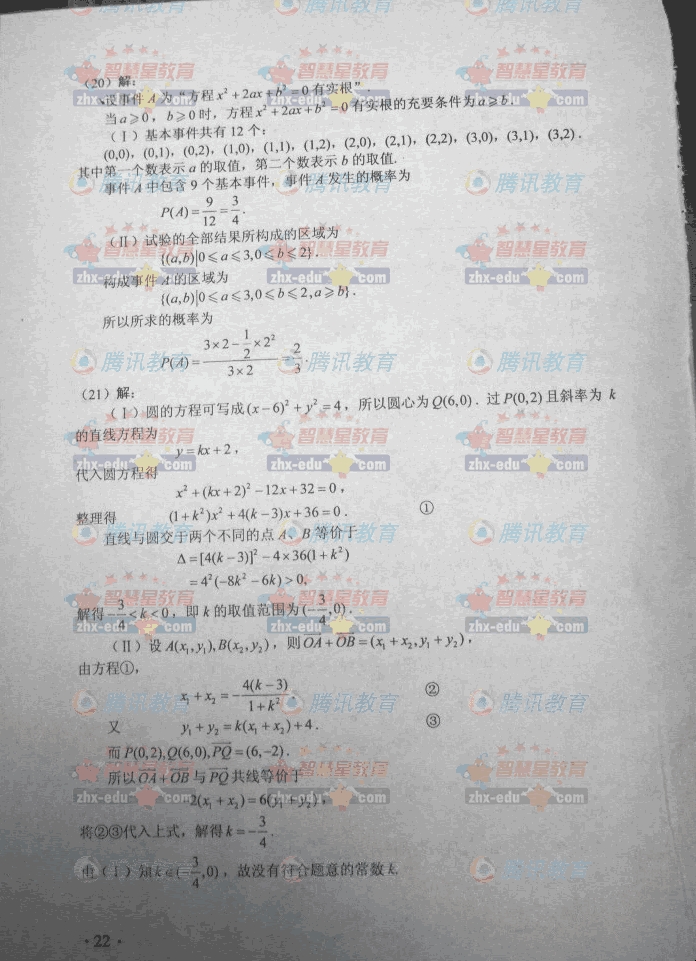 (20)解:
设事件A为"方程x²+2ax+b²=0有实根".
当a≥0, b≥0时,方程x²+2ax+b²=0有实根的充要条件为a≥b.
(Ⅰ)基本事件共有12个:
(0,0), (0,1), (0,2), (1,0), (1,1), (1,2), (2,0), (2,1), (2,2), (3,0), (3,1), (3,2).
其中第一个数表示a的取值,第二个数表示b的取值.
事件A中包含9个基本事件,事件A发生的概率为
P(A)=9/12=3/4.
(Ⅱ)试验的全部结果所构成的区域为
{(a,b)|0≤a≤3,0≤b≤2}.
构成事件A的区域为
{(a,b)|0≤a≤3,0≤b≤2,a≥b}.
所以所求的概率为
P(A)=(3×2-1/2×2²)/(3×2)=2/3.
(21)解:
(Ⅰ)圆的方程可写成(x-6)²+y²=4,所以圆心为Q(6,0).过P(0,2)且斜率为k
的直线方程为
y=kx+2,
代入圆方程得
x²+(kx+2)²-12x+32=0,
整理得 (1+k²)x²+4(k-3)x+36=0. ①
直线与圆交于两个不同的点A、B等价于
Δ=[4(k-3)]²-4×36(1+k²)
=4²(-8k²-6k)>0,
解得-3/4<k<0,即k的取值范围为(-3/4,0).
(Ⅱ)设A(x₁,y₁),B(x₂,y₂),则OA+OB=(x₁+x₂,y₁+y₂),
由方程①,
x₁+x₂=-4(k-3)/(1+k²) ②
又 y₁+y₂=k(x₁+x₂)+4. ③
而P(0,2),Q(6,0),PQ=(6,-2).
所以OA+OB与PQ共线等价于
-2(x₁+x₂)=6(y₁+y₂),
将②③代入上式,解得k=-3/4.
由(Ⅰ)知k∈(-3/4,0),故没有符合题意的常数k.
·22·
智慧星教育
zhx-edu com
腾讯教育